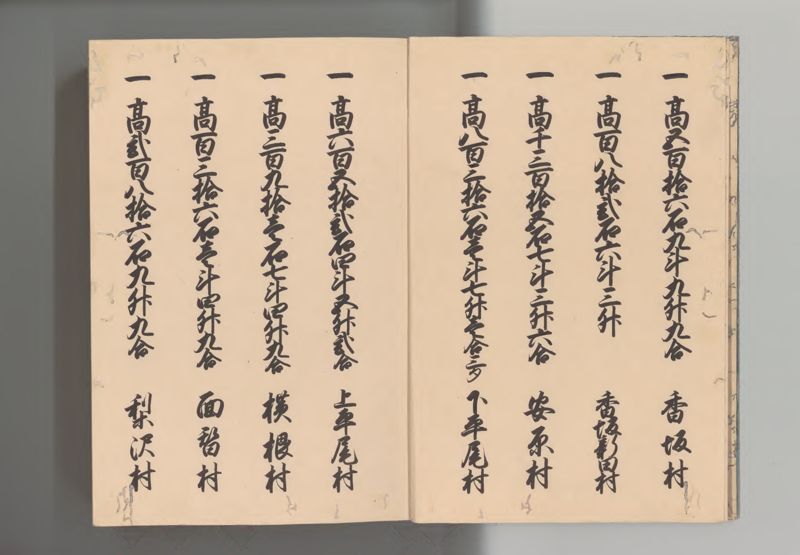 一 高五百拾六石九斗九升九合 香坂村
一 高百八拾弐石六斗三升 香坂新田村
一 高千三百拾五石七斗三升六合 安原村
一 高八百三拾六石壱斗七升壱合三勺 下平尾村
一 高六百五拾弐石四斗五升弐合 上平尾村
一 高三百九拾壱石七斗四升九合 横根村
一 高百三拾六石壱斗四升九合 面替村
一 高弐百八拾六石九升九合 梨沢村